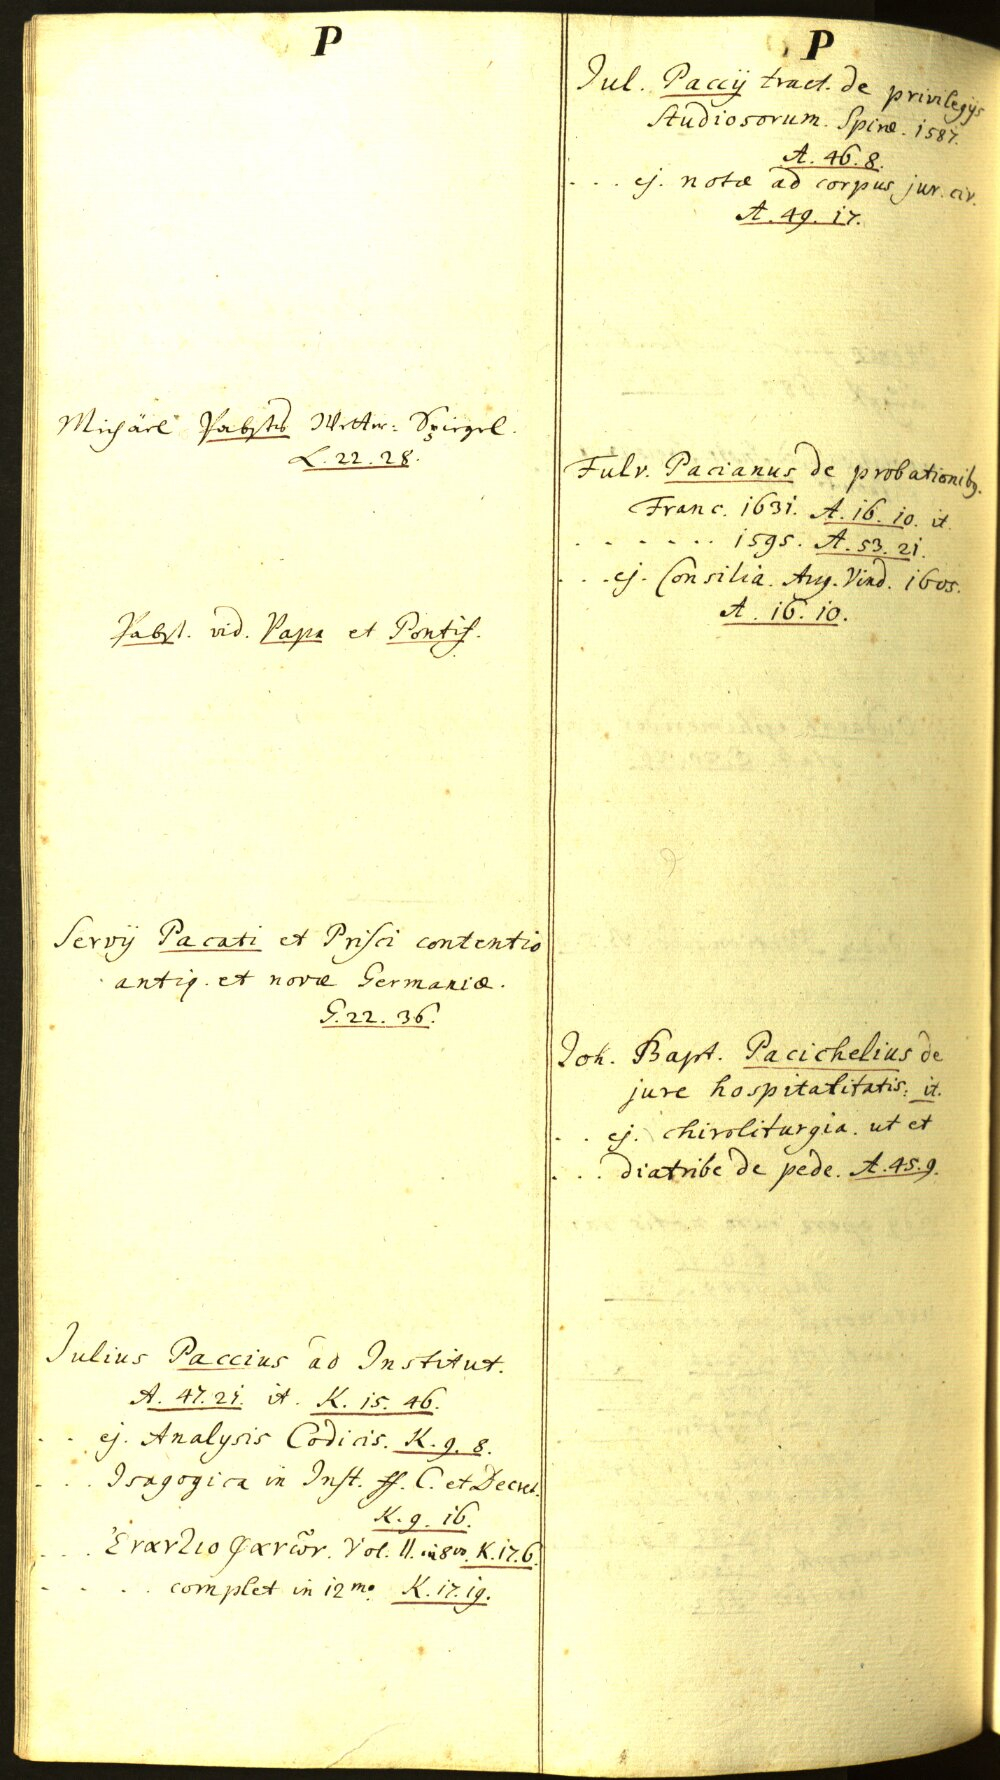 P
Michäel Pabsts Wetter-Spiegel.
L. 22. 28.
Pabst. vid. Papa et Pontif.
Servij Pacati et Prisci contentio
antiq. et novæ Germaniæ.
G. 22. 36.
Julius Paccius ad Institut.
A. 47. 21. it. K. 15. 46.
- - ej. Analysis Codicis. K. 9. 8.
. . . Isagogica in Inst. ff. C. et Decret.
K. 9. 16.
. . . . Ἐναντιοφανῶν. Vol. II. in 8vo. K. 17. 6.
- . . . . complet in 12mo. K. 17. 19.
P
Jul. Paccij tract. de privilegijs
Studiosorum. Spiræ. 1587.
A. 46. 8.
. . . ej. notæ ad corpus jur. civ.
A. 49. 17.
Fulv. Pacianus de probationibq.
Franc. 1631. A. 16. 10. it.
. . . . . . 1595. A. 53. 21.
. . . ej. Consilia. Aug. Vind. 1605.
A. 16. 10.
Joh. Bapt. Pacichelius de
jure hospitalitatis: it.
. . ej. chiroliturgia. ut et
. . . diatribe de pede. A. 45. 9.